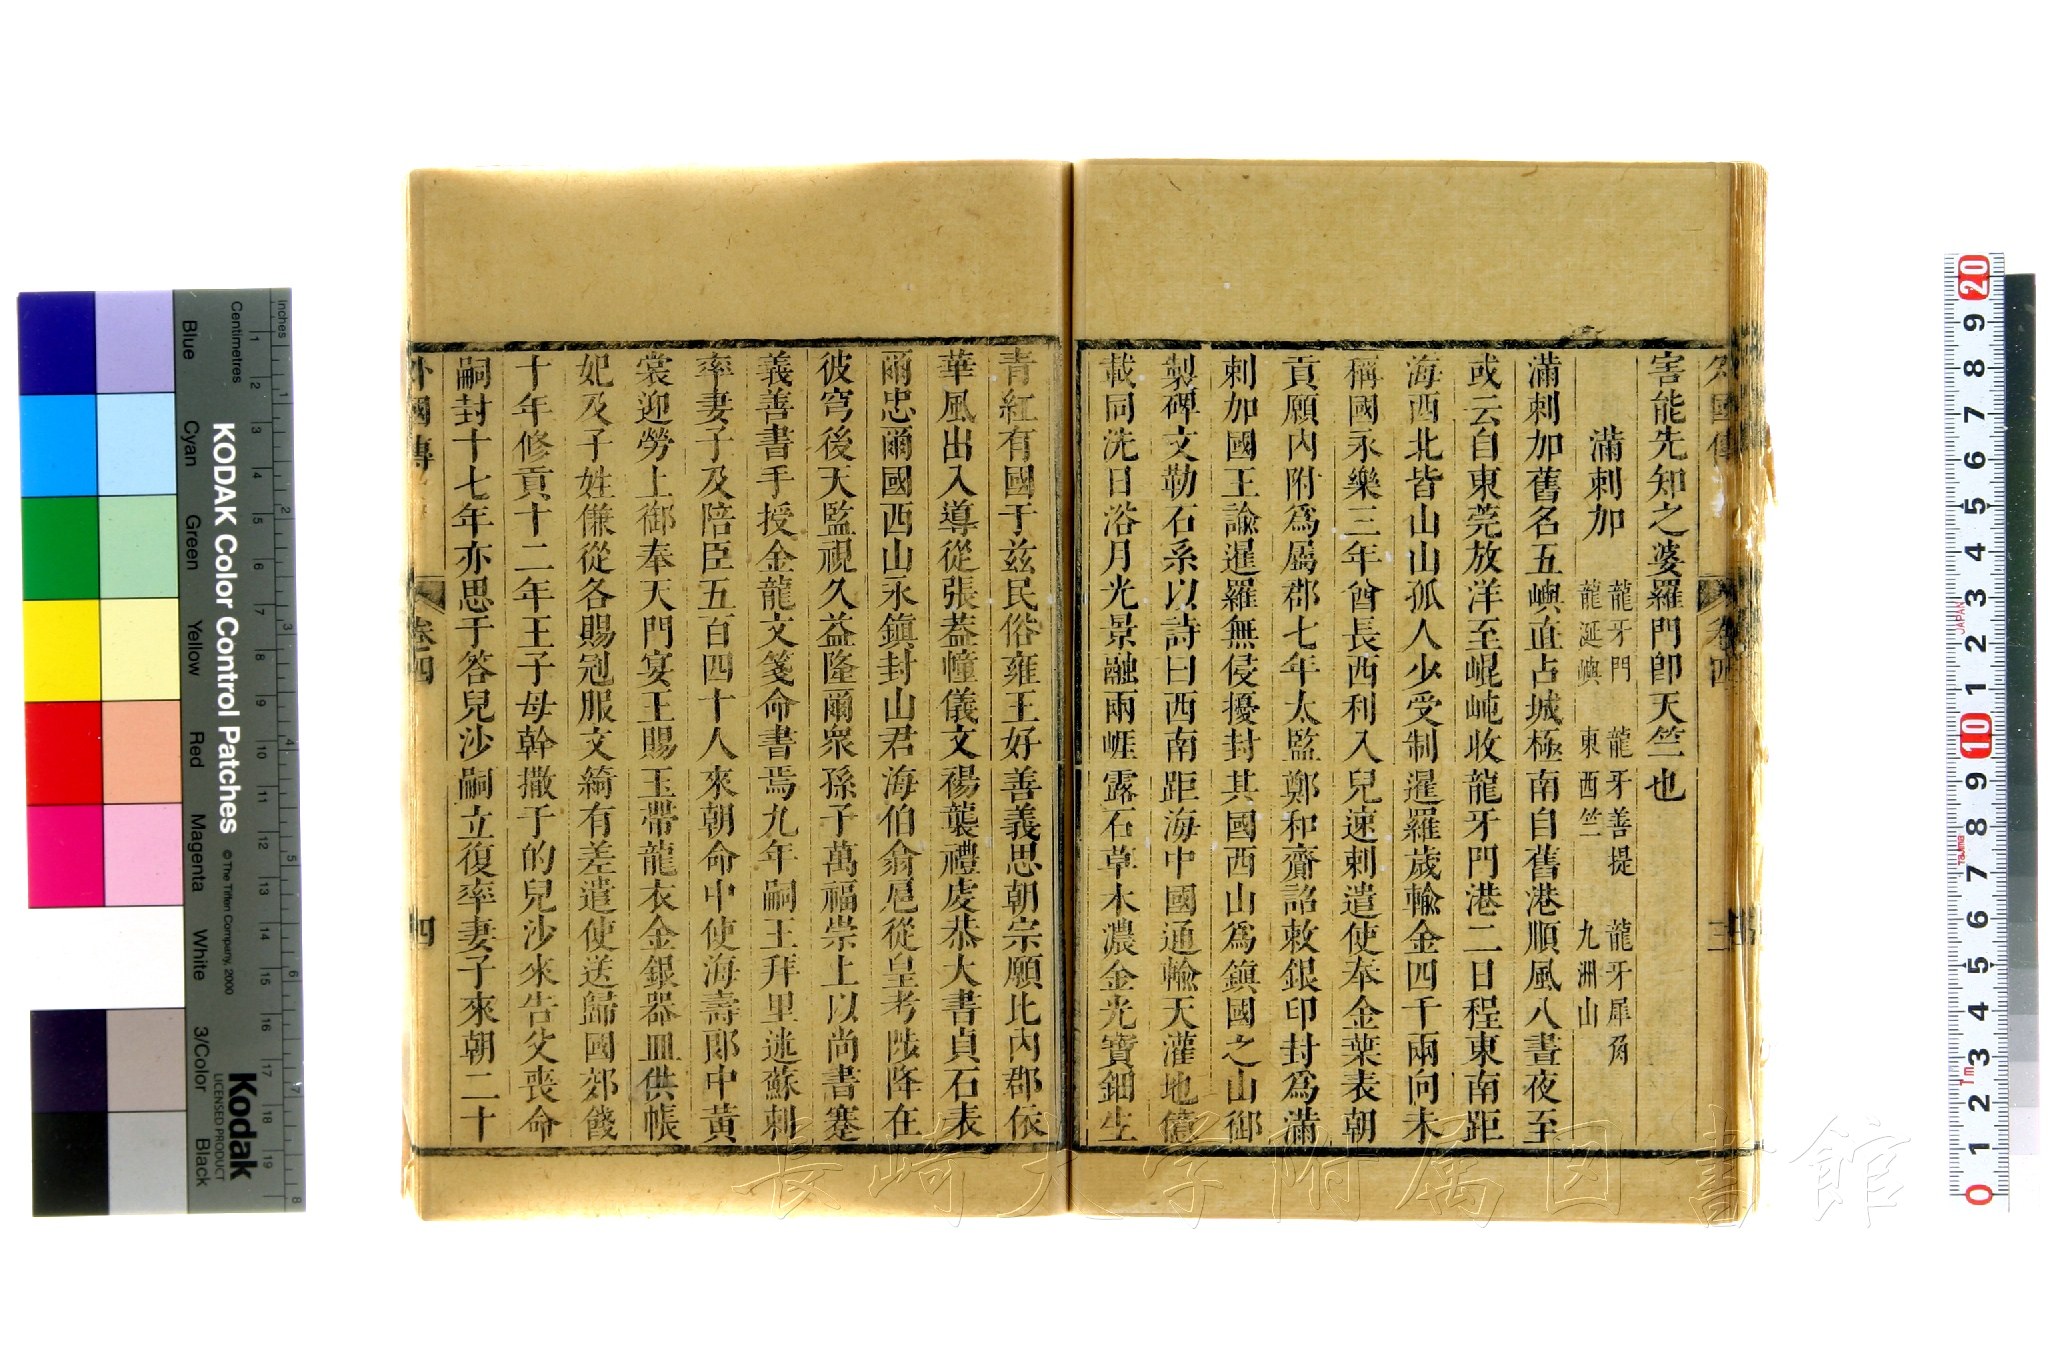 外國傳 卷四 三
害能先知之婆羅門卽天竺也
滿剌加 龍牙門 龍牙善提 龍牙犀角
龍涎嶼 東西竺 九洲山
滿剌加舊名五嶼直占城極南自舊港順風八晝夜至
或云自東莞放洋至崐屯收龍牙門港二日程東南距
海西北皆山山孤人少受制暹羅歲輸金四千兩向未
稱國永樂三年酋長西利入兒速剌遣使奉金葉表朝
貢願內附爲屬郡七年太監鄭和齎詔敕銀印封爲滿
剌加國王諭暹羅無侵擾封其國西山爲鎭國之山御
製碑文勒石系以詩曰西南距海中國通輸天灌地億
載同洗日浴月光景融兩崕露石草木濃金光寶鈿生
青紅有國于玆民俗雍王好善義思朝宗願比內郡依
華風出入導從張葢幢儀文裼襲禮虔恭大書貞石表
爾忠爾國西山永鎭封山君海伯翕扈從皇考陟降在
彼穹後天監視久益隆爾衆孫子萬福崇上以尚書蹇
義善書手授金龍文箋命書焉九年嗣王拜里迷蘇剌
率妻子及陪臣五百四十人來朝命中使海壽郎中黃
裳迎勞上御奉天門宴王賜玉帶龍衣金銀器皿供帳
妃及子姪傔從各賜冠服文綺有差遣使送歸國郊餞
十年修貢十二年王子母幹撒子的兒沙來告父喪命
嗣封十七年亦思于答兒沙嗣立復率妻子來朝二十
外國傳 卷四 四
KODAK Color Control Patches
© The Tiffen Company, 2000
Kodak
LICENSED PRODUCT
Inches 1 2 3 4 5 6 7 8
Centimetres 1 2 3 4 5 6 7 8 9 10 11 12 13 14 15 16 17 18 19
Blue Cyan Green Yellow Red Magenta White 3/Color Black
20 9 8 7 6 5 4 3 2 1 10 9 8 7 6 5 4 3 2 1 0
JAPAN
Tajima
長崎大学附属図書館